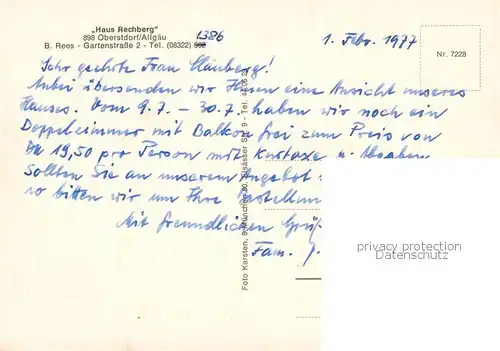 „Haus Rechberg"
898 Oberstdorf/Allgäu
B. Rees - Gartenstraße 2 - Tel. (08322) 1386
1. Febr. 1977
Nr. 7228
Sehr geehrte Frau
Anbei übersenden wir Ihnen eine Ansicht unseres
Hauses. Vom 9.7. – 30.7. haben wir noch ein
Doppelzimmer mit Balkon frei zum Preis von
DM 19,50 pro Person mit Kurtaxe u. Abgaben
Sollten Sie an unserem Angebot
so bitten wir um Ihre Bestellun
Mit freundlichen Grüß
Fam.
Foto Karsten, 8 München 80, Elsässer Str. 9 - Tel.
privacy protection
Datenschutz